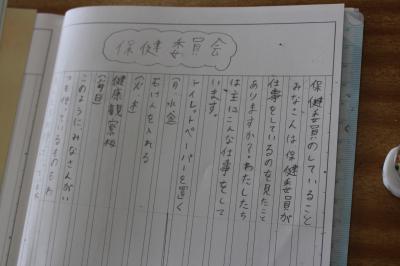 保健委員会
保健委員のしていること
みなさんは保健委員が
仕事をしているのを見たこと
ありますか？わたしたち
は主にこんな仕事をして
います。
トイレットペーパーを置く
(月・水・金)
石けんを入れる
(火・木)
健康観察板
(毎日)
このようにみなさんがい
つも使っているものもわ